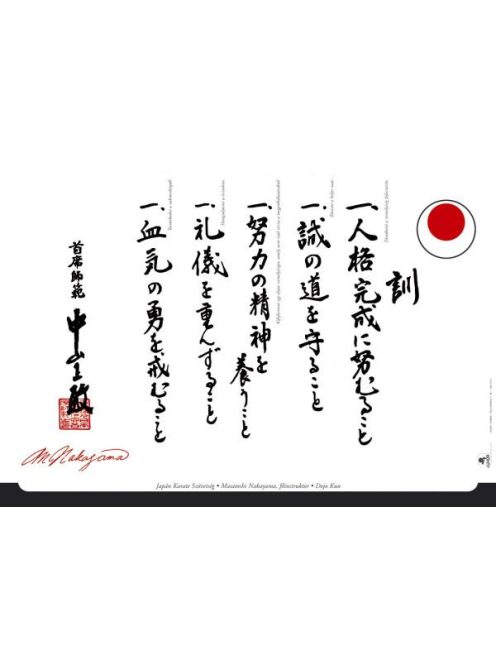 訓
一、人格完成に努むること
一、誠の道を守ること
一、努力の精神を
養うこと
一、礼儀を重んずること
一、血気の勇を戒むること
首席師範
中山正敏
M. Nakayama
Japán Karate Szövetség • Masatoshi Nakayama, főinstruktor • Dojo Kun